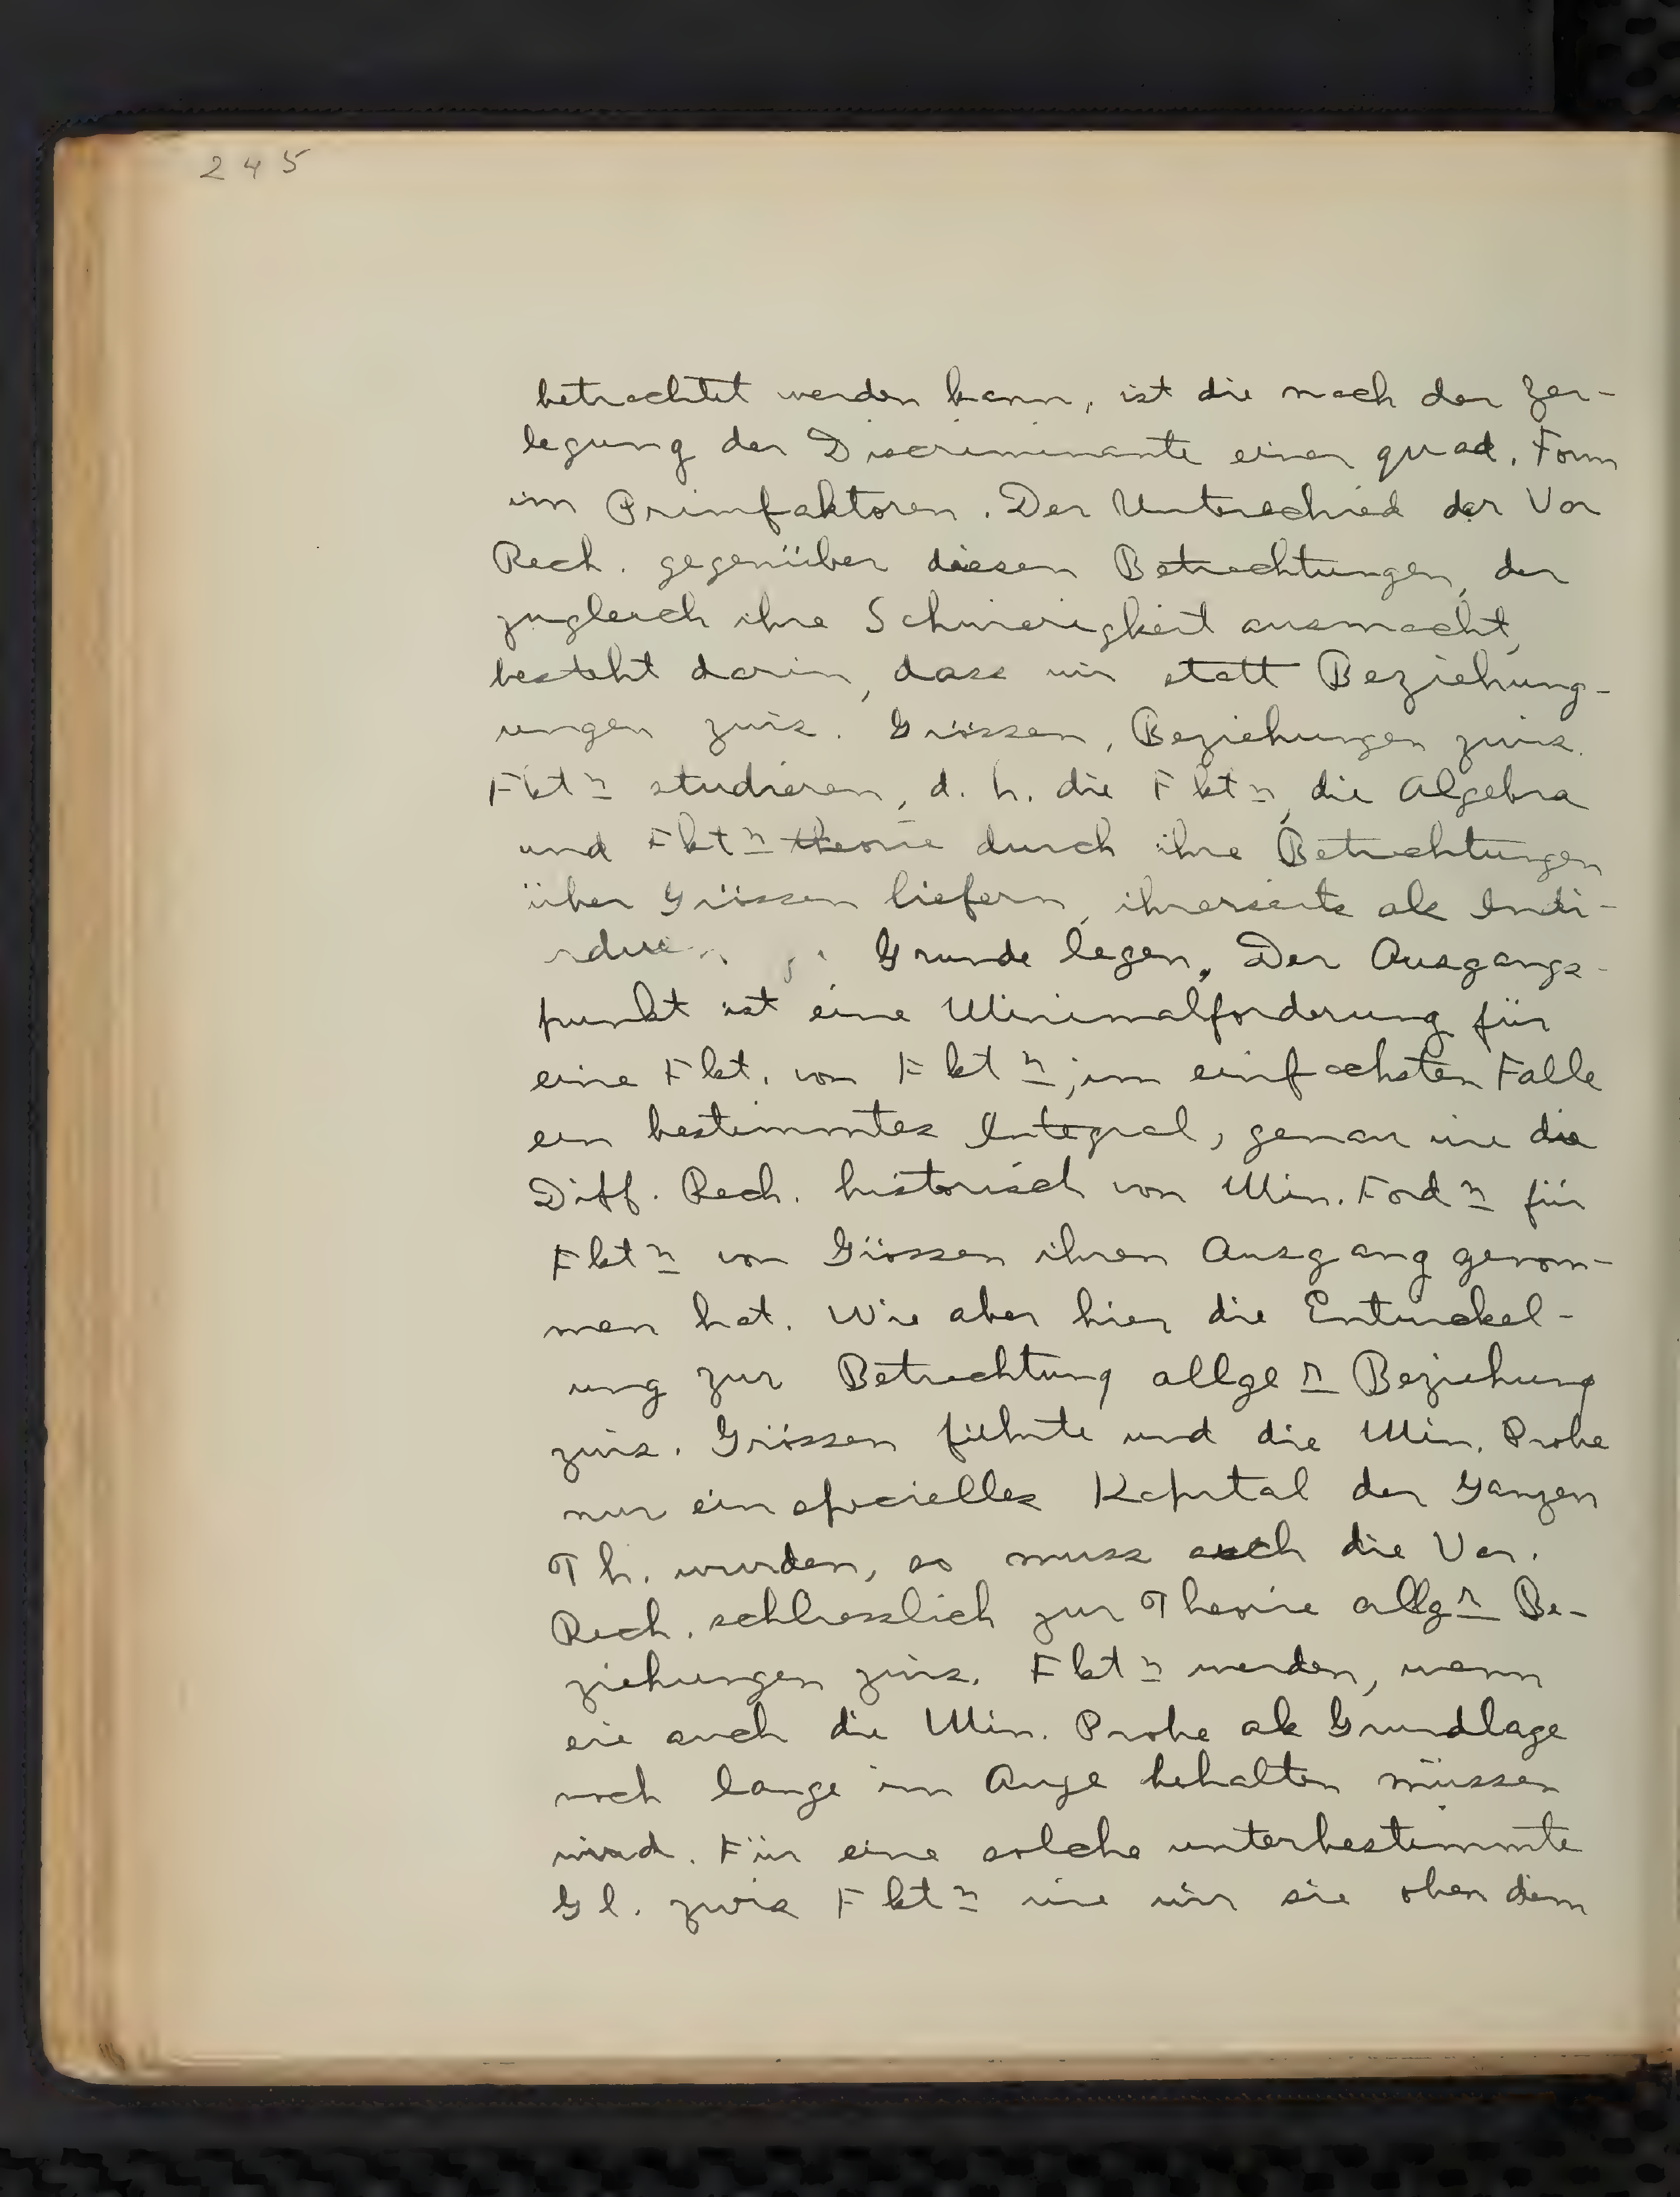 245
betrachtet werden kann, ist die nach der Zer-
legung der Discriminante einer quad. Form
in Primfaktoren. Der Unterschied der Var
Rech. gegenüber diesen Betrachtungen, der
zugleich ihre Schwierigkeit ausmacht,
besteht darin, dass wir statt Beziehung-
ungen zwis. Grössen, Beziehungen zwis.
Fktn studieren, d. h. die Fktn, die Algebra
und Fktntheorie durch ihre Betrachtungen
über Grössen liefern, ihrerseits als Indi-
Grunde legen. Der Ausgangs-
punkt ist eine Minimalforderung für
eine Fkt. von Fktn; im einfachsten Falle
ein bestimmtes Integral, genau wie die
Diff. Rech. historisch von Min. Fordn für
Fktn von Grössen ihren Ausgang genom-
men hat. Wie aber hier die Entwickel-
ung zur Betrachtung allgen Beziehung
zwis. Grössen führte und die Min. Probe
nur ein specielles Kapital der Ganzen
Th. wurden, so muss auch die Var.
Rech. schliesslich zur Theorie allgn Be-
ziehungen zwis. Fktn werden, wenn
sie auch die Min. Probe als Grundlage
noch lange im Auge behalten müssen
wird. Für eine solche unterbestimmte
Gl. zwis Fktn wie wir sie oben dem